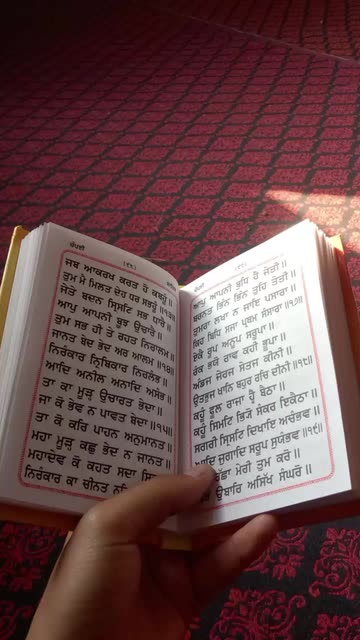 ਚੌਪਈ
ਜਬ ਆਕਰਖ ਕਰਤ ਹੋ ਕਬਹੂੰ ॥
ਤੁਮ ਮੈ ਮਿਲਤ ਦੇਹ ਧਰ ਸਭਹੂੰ ॥੧੩॥
ਜੇਤੇ ਬਦਨ ਸ੍ਰਿਸਟਿ ਸਭ ਧਾਰੈ ॥
ਆਪੁ ਆਪਨੀ ਬੂਝ ਉਚਾਰੈ ॥
ਤੁਮ ਸਭ ਹੀ ਤੇ ਰਹਤ ਨਿਰਾਲਮ ॥
ਜਾਨਤ ਬੇਦ ਭੇਦ ਅਰ ਆਲਮ ॥੧੪॥
ਨਿਰੰਕਾਰ ਨ੍ਰਿਬਿਕਾਰ ਨਿਰਲੰਭ ॥
ਆਦਿ ਅਨੀਲ ਅਨਾਦਿ ਅਸੰਭ ॥
ਤਾ ਕਾ ਮੂੜ੍ਹ ਉਚਾਰਤ ਭੇਦਾ ॥
ਜਾ ਕੋ ਭੇਵ ਨ ਪਾਵਤ ਬੇਦਾ ॥੧੫॥
ਤਾ ਕੋ ਕਰਿ ਪਾਹਨ ਅਨੁਮਾਨਤ ॥
ਮਹਾ ਮੂੜ੍ਹ ਕਛੁ ਭੇਦ ਨ ਜਾਨਤ ॥
ਮਹਾਦੇਵ ਕੋ ਕਹਤ ਸਦਾ
ਨਿਰੰਕਾਰ ਕਾ ਚੀਨਤ
ਚੌਪਈ
ਆਪੁ ਆਪਨੀ ਬੁਧਿ ਹੈ ਜੇਤੀ ॥
ਬਰਨਤ ਭਿੰਨ ਭਿੰਨ ਤੁਹਿ ਤੇਤੀ ॥
ਤੁਮਰਾ ਲਖਾ ਨ ਜਾਇ ਪਸਾਰਾ ॥
ਕਿਹ ਬਿਧਿ ਸਜਾ ਪ੍ਰਥਮ ਸੰਸਾਰਾ ॥੧੭॥
ਏਕੈ ਰੂਪ ਅਨੂਪ ਸਰੂਪਾ ॥
ਰੰਕ ਭਯੋ ਰਾਵ ਕਹੀ ਭੂਪਾ ॥
ਅੰਡਜ ਜੇਰਜ ਸੇਤਜ ਕੀਨੀ ॥
ਉਤਭੁਜ ਖਾਨਿ ਬਹੁਰ ਰਚਿ ਦੀਨੀ ॥੧੮॥
ਕਹੂੰ ਫੂਲ ਰਾਜਾ ਹ੍ਵੈ ਬੈਠਾ ॥
ਕਹੂੰ ਸਿਮਟਿ ਭਿਯੋ ਸੰਕਰ ਇਕੈਠਾ ॥
ਸਗਰੀ ਸ੍ਰਿਸਟਿ ਦਿਖਾਇ ਅਚੰਭਵ ॥
ਆਦਿ ਜੁਗਾਦਿ ਸਰੂਪ ਸੁਯੰਭਵ ॥੧੯॥
ਮੇਰੀ ਤੁਮ ਕਰੋ ॥
ਉਬਾਰਿ ਅਸਿੱਖ ਸੰਘਰੋ ॥